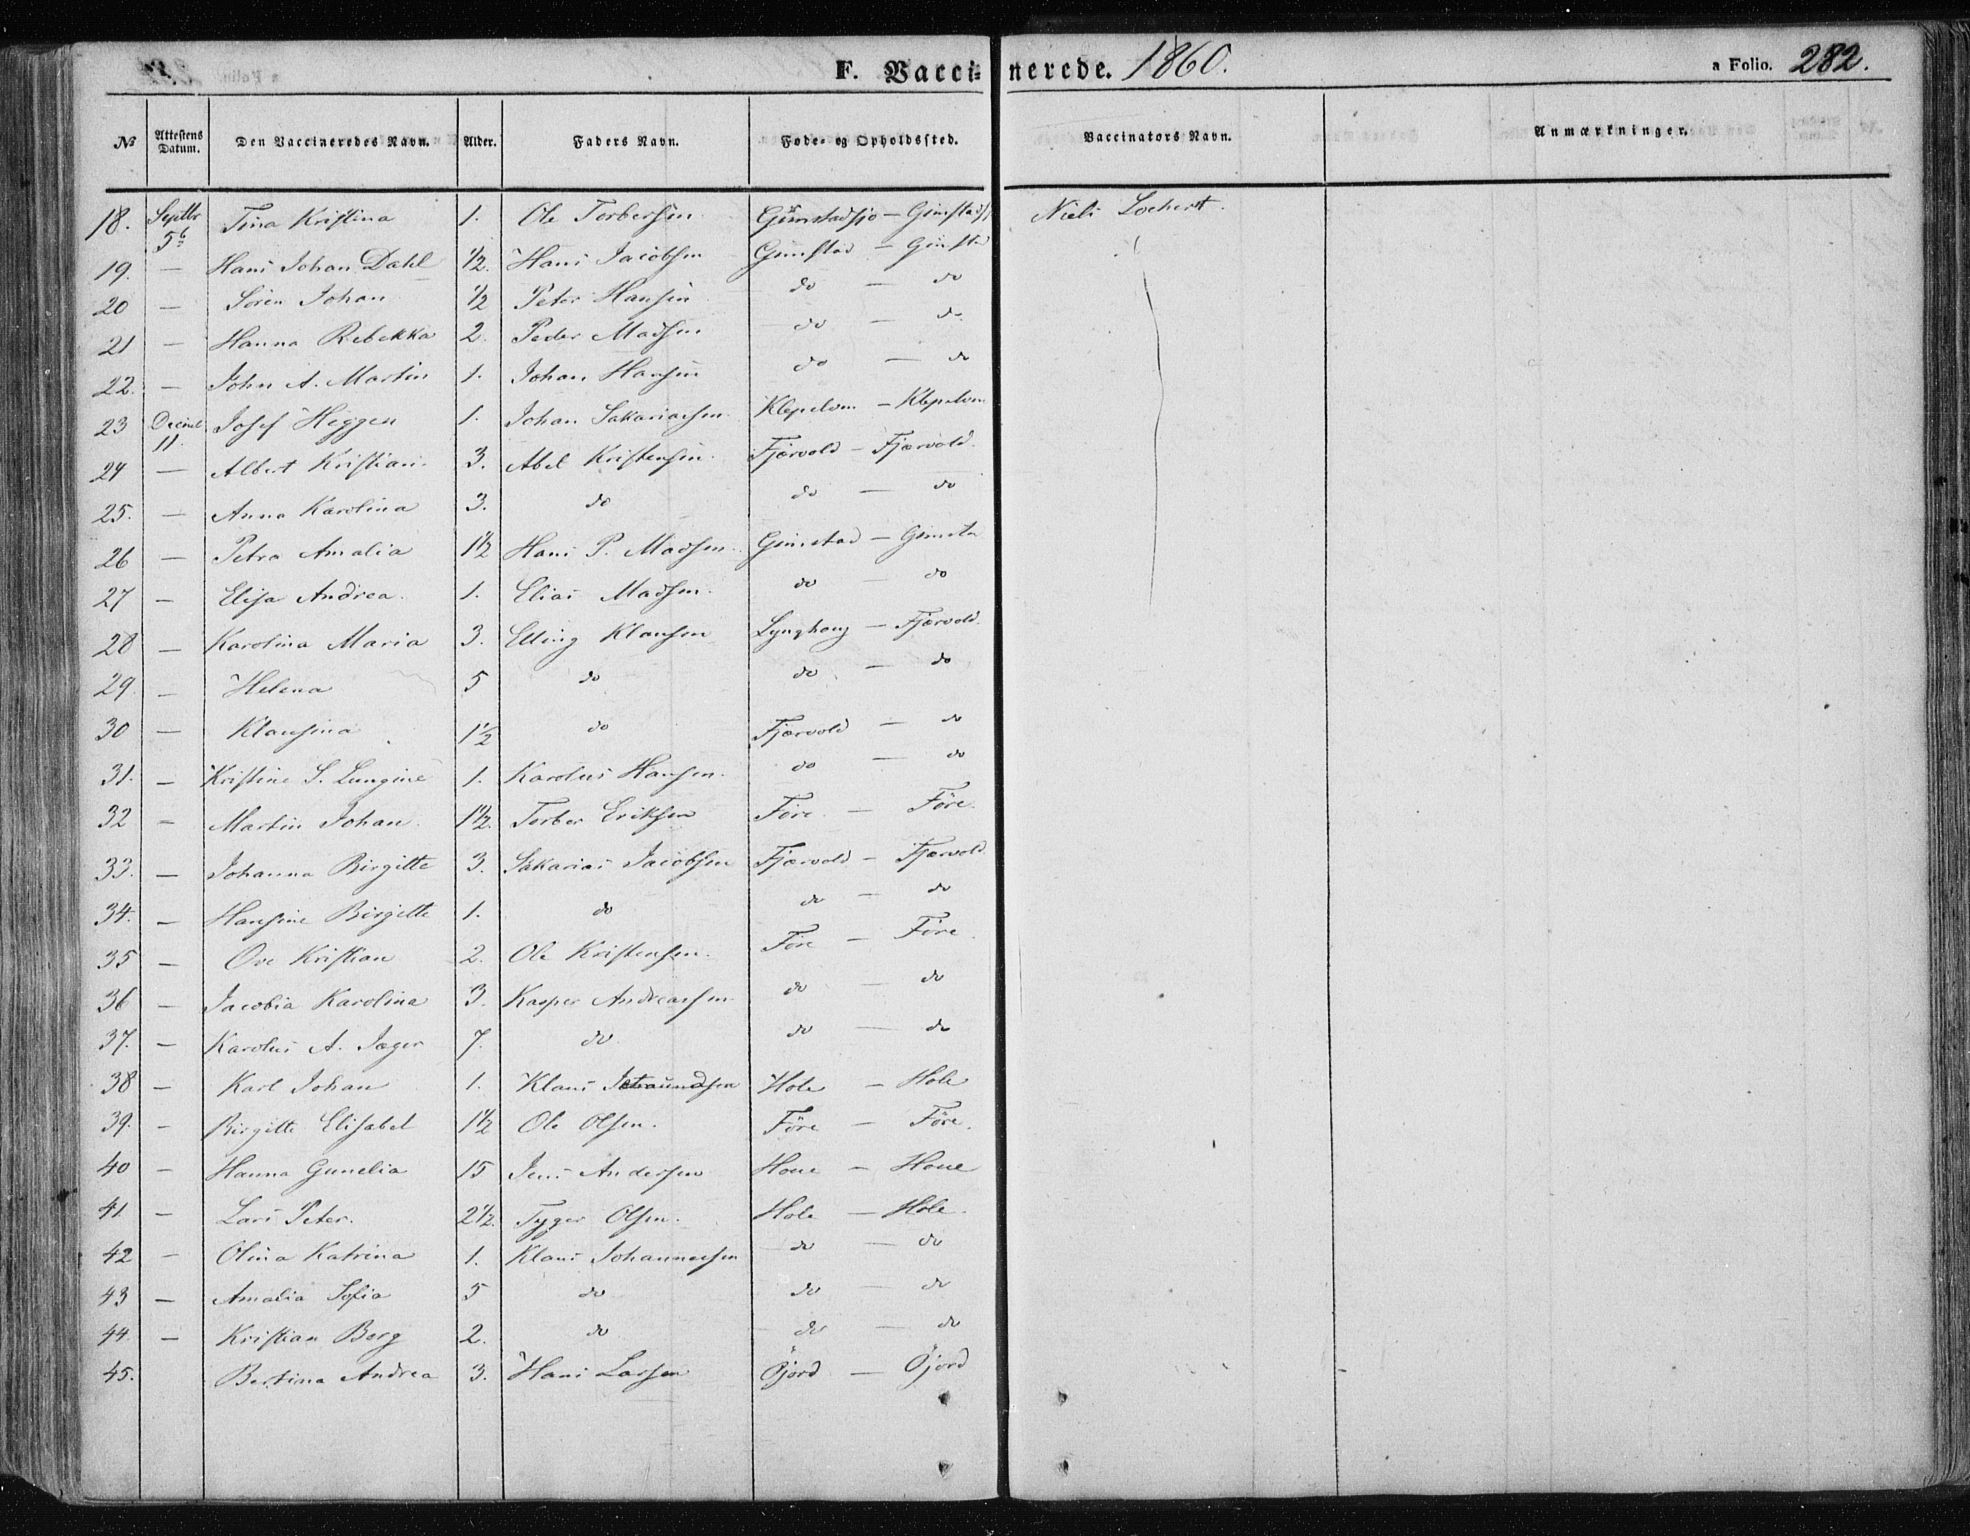 F. Vaccinerede. 1860. a Folio. 282.
№ Attestens Datum. Den Vaccineredes Navn. Alder. Faders Navn. Føde- og Opholdssted. Vaccinators Navn. Anmærkninger.
18. Septbr 5 Tina Kristina 1. Ole Torbersen Gimstadsjø — Niels Lochert.
19. — Hans Johan Dahl ½. Hans Jacobsen Gimstad — Gimstad
20 — Sören Johan ½ Peter Hansen do — do
21 — Hanna Rebekka 2. Peder Madsen do — do
22. — John A. Martin 1. Johan Hansen do — do
23 Decembr 11. Josef Heggen 1. Johan Sakariassen Klepelvm — Klepelvm
24 — Albert Kristian 3. Abel Kristensen Fjærvold — Fjærvold
25. — Anna Karolina 3. do do — do
26 — Petra Amalia 1½ Hans P. Madsen Gimstad — Gimsta
27 — Elisa Andrea. 1. Elias Madsen. do — do
28 — Karolina Maria 3. Elling Klausen Lynghaug — Fjærvold.
29 — Helena 5 do do — do
30 — Klausina 1½ do Fjærvold — do
31. — Kristine S. Lungine 1. Karolus Hansen. do — do
32 — Martin Johan. 1½. Torber Eriksen Före — Före.
33. — Johanna Birgitte 3. Sakarias Jacobsen Fjærvold — Fjærvold
34. — Hansine Birgitte 1. do do — do
35 — Ove Kristian 2. Ole Kristensen. Före — Före.
36 — Jacobia Karolina 3. Kasper Andreassen do — do
37. — Karolus A. Jæger 7. do do — do
38 — Karl Johan 1. Klaus Hole — Hole
39. — Birgitte Elisabet 1½ Ole Olsen. Före — Före.
40 — Hanna Gunelia 15 Jens Andersen Houe — Houe
41 — Lars Peter. 2½. Tyger Olsen. Hole — Hole.
42 — Olina Katrina 1. Klaus Johannessen do — do
43 — Amalia Sofia 5 do do — do
44. — Kristian Berg 2. do do — do
45. Bertina Andrea 3. Hans Larsen Öjord — Öjord